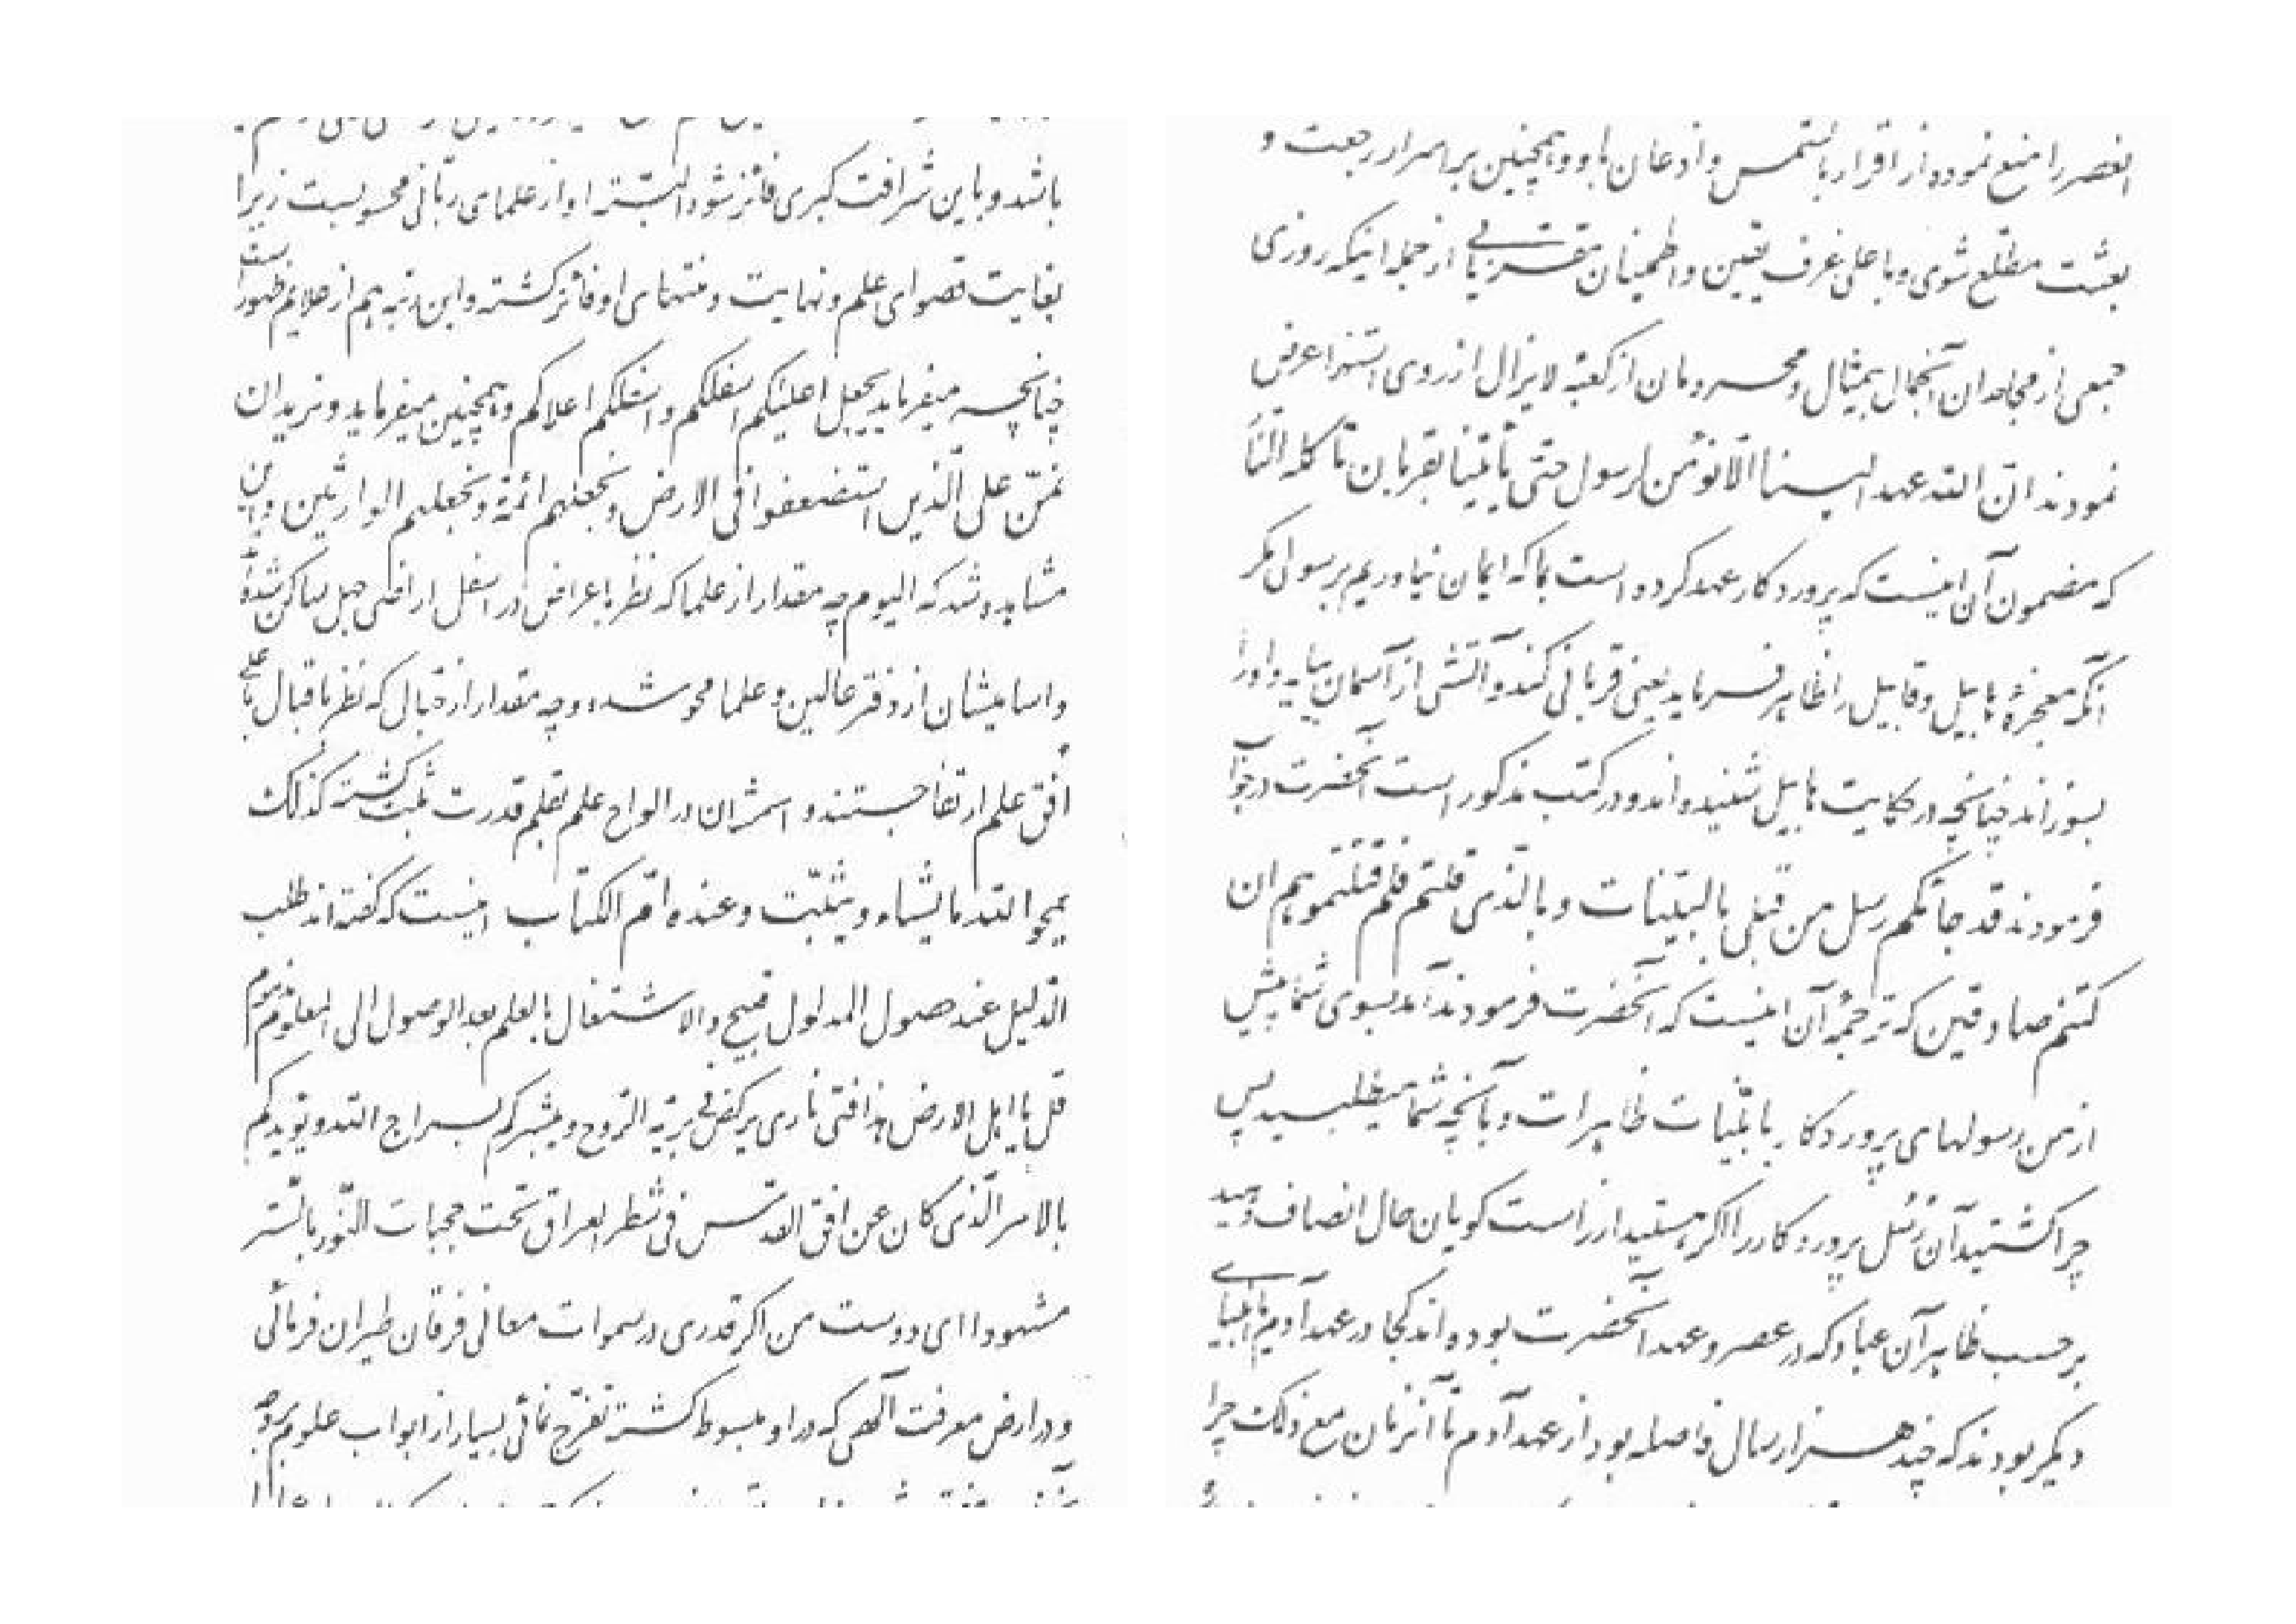 الفصر را منع نموده از اقرار باشمس و اذعان باو و همچنین بر اسرار رجعت و
بعثت مطلع شوی و باعلی غرف یقین و اطمینان مقر یابی از جمله اینکه روزی
جمعی از مجاحدان آنجمال بیمثال و محرومان از کعبهٔ لایزال از روی استهزا عرض
نمودند ان الله عهد الینا الّا نؤمن لرسول حتی یأتینا بقربان تأکله النّار
که مضمون آن اینست که پروردگار عهد کرده است بما که ایمان نیاوریم برسولی مگر
آنکه معجزهٔ هابیل و قابیل را ظاهر فرماید یعنی قربانی کند و آتشی از آسمان بیاید و او را
بسوزاند چنانچه در حکایت هابیل شنیده‌اند و در کتب مذکور است آنحضرت در جواب
فرمودند قد جائکم رسل من قبلی بالبیّنات و بالّذی قلتم فلم قتلتموهم ان
کنتم صادقین که ترجمهٔ آن اینست که آنحضرت فرمودند آمد بسوی شما پیش
از من رسولهای پروردگار با بیّنات ظاهرات و بآنچه شما میطلبید پس
چرا کشتید آن رُسُل پروردگار را اگر هستید از راست گویان حال انصاف دهید
بر حسب ظاهر آن عباد که در عصر و عهد آنحضرت بوده‌اند کجا در عهد آدم یا انبیای
دیگر بودند که چند هزار سال فاصله بود از عهد آدم تا آنزمان مع ذلک چرا
باشد و باین شرافت کبری فائز شود البتّه او از علمای ربّانی محسوبست زیرا
بغایت قصوای علم و نهایت و منتهای او فائز گشته و این رتبه هم از علایم ظهور است
چنانچه میفرماید یجعل اعلیکم اسفلکم و اسفلکم اعلاکم و همچنین میفرماید و نرید ان
نمنّ علی الّذین استضعفوا فی الارض و نجعلهم ائمّة و نجعلهم الوارثین و این
مشاهده شد که الیوم چه مقدار از علما که نظر باعراض در اسفل اراضی جهل ساکن شده
و اسامیشان از دفتر عالین و علما محو شده و چه مقدار از جهّال که نظر باقبال باعلی
افق علم ارتقا جستند و اسمشان در الواح علم بقلم قدرت ثبت گشته کذلک
یمحو الله ما یشاء و یثبّت و عنده امّ الکتاب اینست که گفته‌اند طلب
الدّلیل عند حصول المدلول قبیح و الاشتغال بالعلم بعد الوصول الی المعلوم مذموم
قل یا اهل الارض هذا فتی ناری یرکض فی بریّة الرّوح و یبشّرکم بسراج الله و یذکرکم
بالامر الّذی کان عن افق القدس فی شطر العراق تحت حجبات النّور بالستر
مشهودا ای دوست من اگر قدری در سموات معانی فرقان طیران فرمائی
و در ارض معرفت الهی که در او مبسوط گشته تفرّج نمائی بسیار از ابواب علوم بر وجه